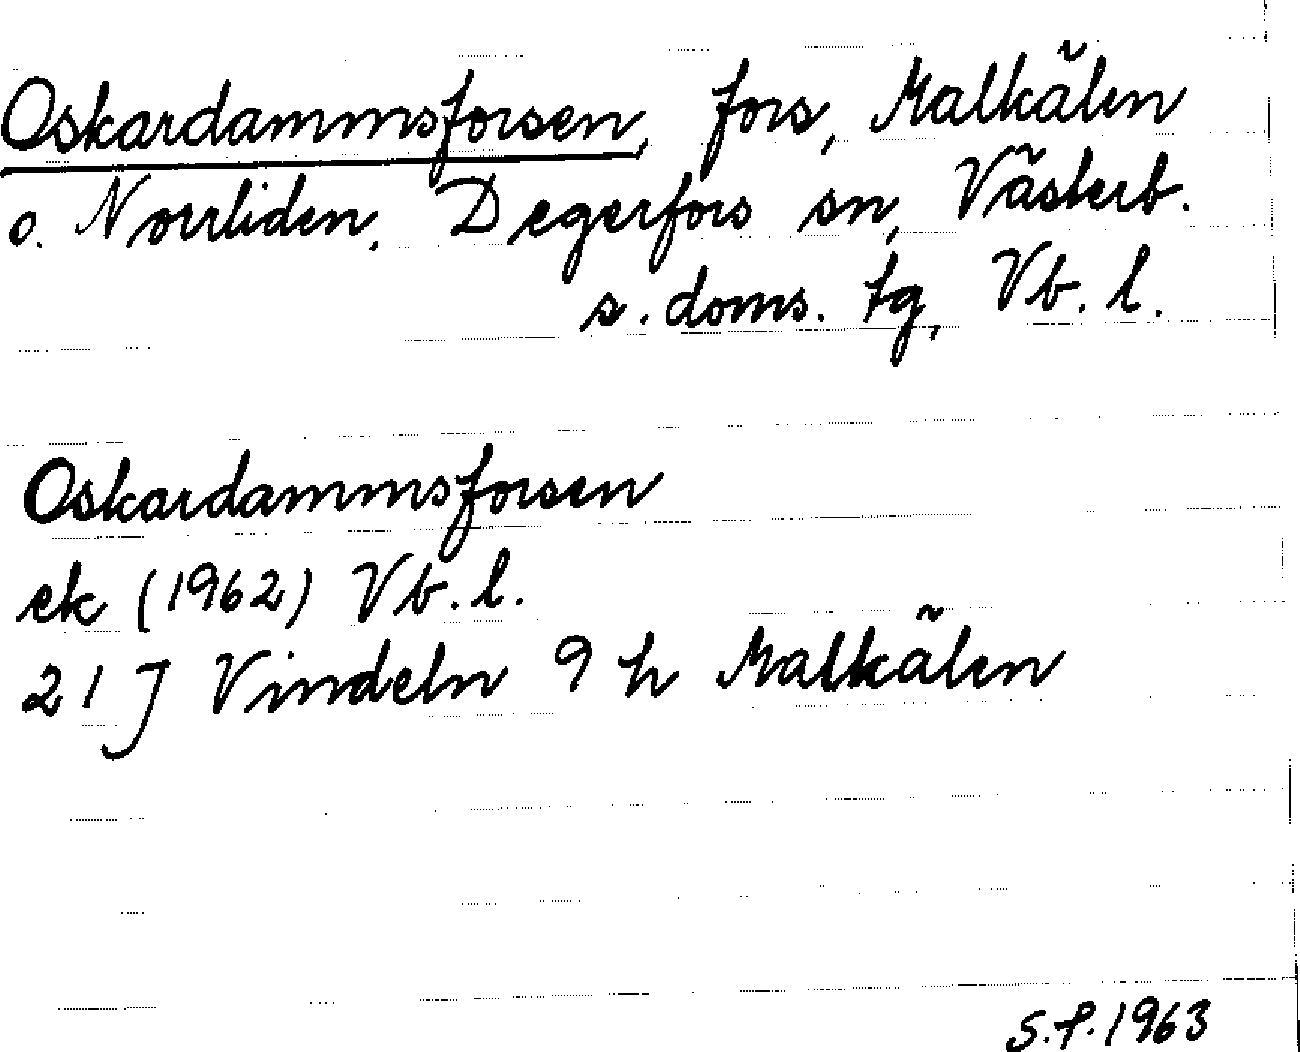 Oskardammsforsen, fors, Malkälen
o. Norrliden, Degerfors sn, Västerb.
s. doms. tg, Vb. l.
Oskardammsforsen
ek (1962) Vb. l.
21 J Vindeln 9 h Malkälen
S.P. 1963